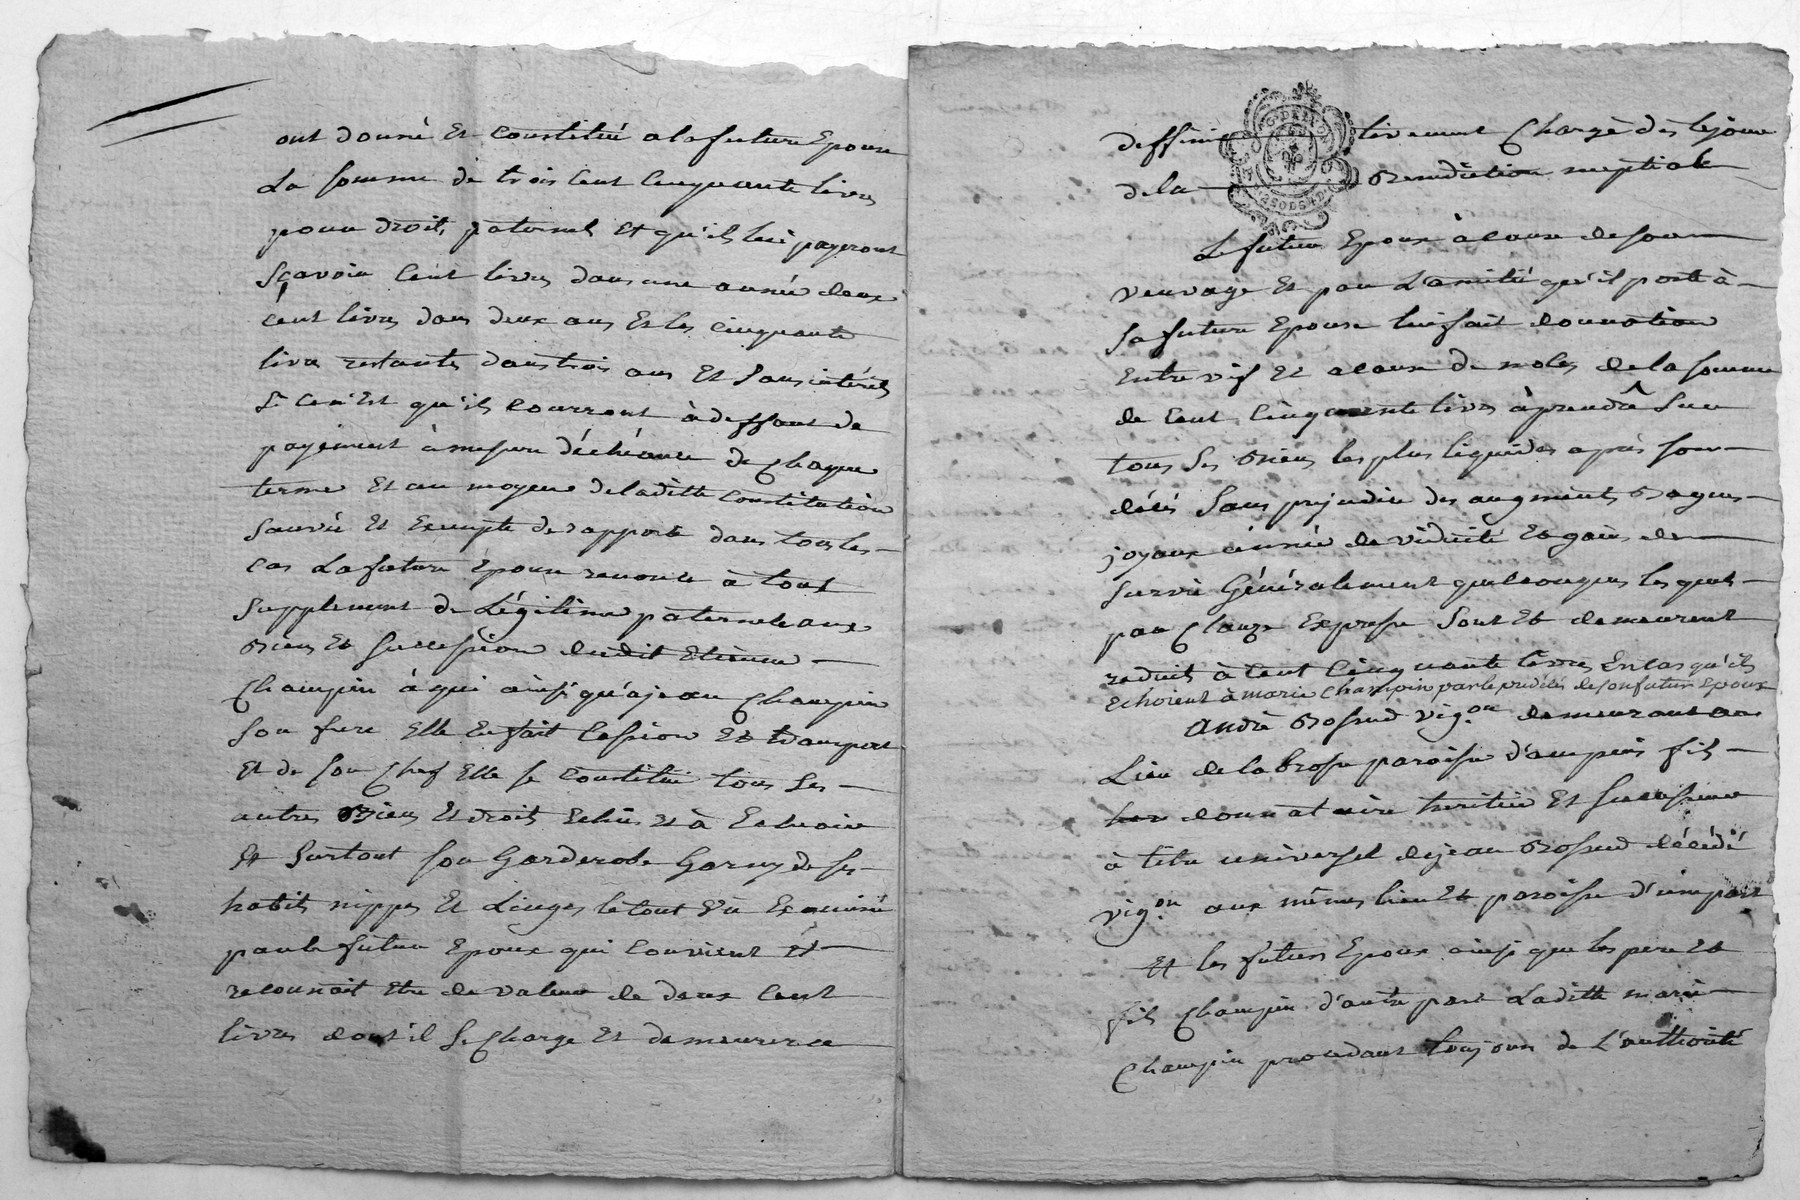 ont donné Et Constitué a la future Epouse
La somme de trois Cent Cinquante livres
pour droits paternel Et qu'ils lui payeront
Sçavoir Cent livres dans une année deux
cent livres dans deux ans Et les cinquante
livres restantes dans trois ans Et Sans intérêts
Si Ce n'Est qu'ils courront à deffaut de
payement à mesure déchéance de Chaque
terme Et au moyen de laditte constitution
Sauvée Et Exempte de rapport dans tous les
Cas La future Epouse renonce à tout
Supplement de Légitime paternele aux
Biens Et Succession dudit Etienne
Champin à qui ainsi qu'a jean Champin
Son frere Elle En fait Cession Et transport
Et de Son Chef Elle Se Constitue tous Ses
autres Biens Et droits Echus et à Echeoir
Et Surtout Son Garderobe Garny de Ses
habits nippes Et Linges le tout Vû Examiné
par le futur Epoux qui Convient Et
reconnoit Etre de valeur de deux Cent
livres dont il Se Charge Et demeurera
deffinitivement Chargé dès le jour
de la Benediction nuptiale
Le futur Epoux à cause de son
veuvage Et par L'amitié qu'il porte à
Sa future Epouse lui fait donnation
Entre vif Et a cause de noces de la Somme
de Cent Cinquante livres à prendre Sur
tous Ses Biens les plus liquides après Son
décés Sans prejudice des augments Bagues
joyaux année de viduité Et gains de
Survie Généralement quelconques les quels
par Clauze Expresse Sont Et demeurent
reduits à Cent Cinquante livres En Cas qu'ils
Echoient à marie Champin par le prédécés de son futur Epoux
André Bossud vig.on demeurant au
Lieu de la brosse paroisse d'ampuis fils
donnataire heritier Et Successeur
à titre universel de jean Bossud décédé
vig.on aux mêmes lieu Et paroisse d'une part
Et les futurs Epoux ainsi que les pere Et
fils Champin d'autre part Laditte marie
Champin procedant toujours de L'authorité